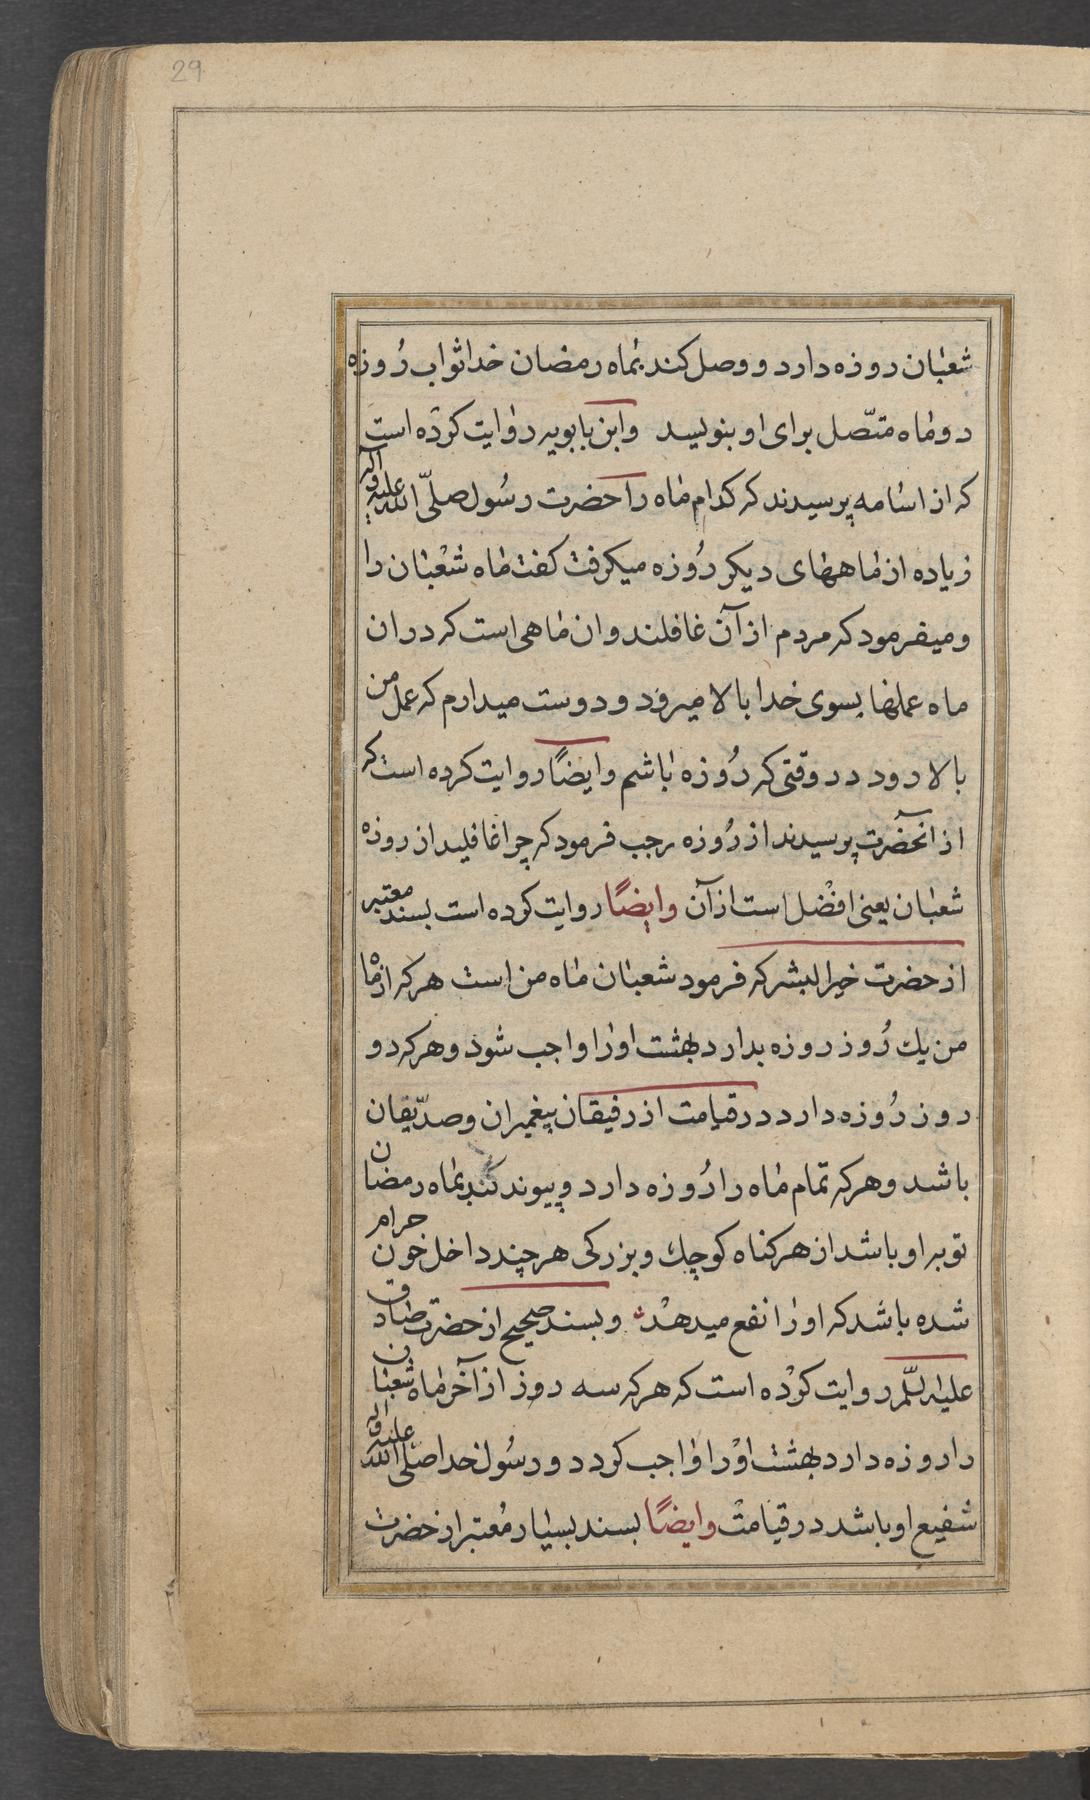 29
شعبان روزه دارد و وصل کند بماه رمضان خدا ثواب رُوزه
دو ماه متّصل برای او بنویسد وابن بابویه روایت کرده است
که از اسامه پرسیدند که کدام ماه را حضرت رسُول صلّی الله علیه وآله
زیاده از ماههای دیکر رُوزه میکرفت کفت ماه شعبان را
ومیفرمود که مردم از آن غافلند و ان ماهی است که در ان
ماه عملها بسوی خدا بالا میرود و دوست میدارم که عمل من
بالا رود در وقتی که رُوزه باشم وایضًا روایت کرده است که
از انحضرت پرسیدند از رُوزه رجب فرمود که چرا غافلید از روزه
شعبان یعنی افضل است از آن وایضًا روایت کرده است بسند معتبر
از حضرت خیرالبشر که فرمود شعبان ماه من است هر که از ماه
من یك رُوز روزه بدارد بهشت اورا واجب شود و هر که دو
روز رُوزه دارد در قیامت از رفیقان پیغمبران و صدّیقان
باشد و هر که تمام ماه را رُوزه دارد و پیوند کند بماه رمضان
توبه او باشد از هر کناه کوچك و بزرکی هر چند داخل خون حرام
شده باشد که اورا نفع میدهد و بسند صحیح از حضرت صادق
علیه السّلم روایت کرده است که هر که سه روز از آخر ماه شعبان
را روزه دارد بهشت اورا واجب کردد و رسُول خدا صلّی الله علیه واله
شفیع او باشد در قیامت وایضًا بسند بسیار مُعتبر از حضرت